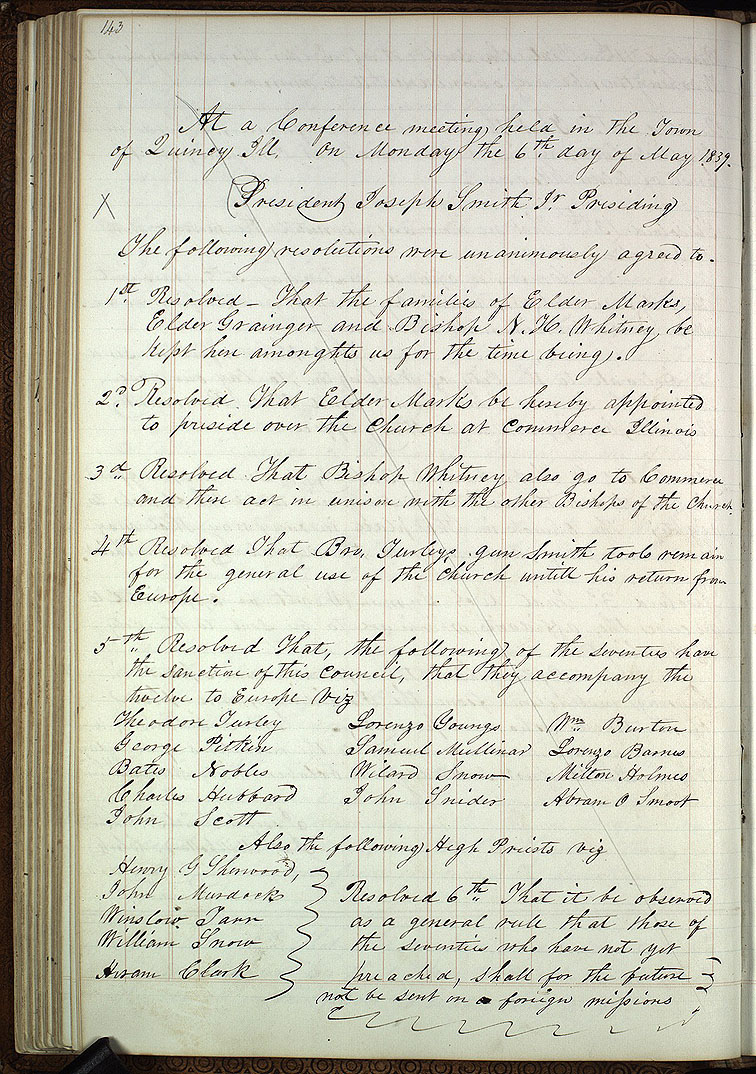 143
At a Conference meeting held in the Town
of Quincy Ill. On Monday the 6th day of May 1839.
X President Joseph Smith Jr Presiding
The following resolutions were unanimously agreed to.
1st Resolved – That the families of Elder Marks,
Elder Grainger and Bishop N. K. Whitney be
kept here amonghts us for the time being.
2d. Resolved That Elder Marks be hereby appointed
to preside over the Church at Commerce Illinois
3d Resolved That Bishop Whitney also go to Commerce
and there act in unison with the other Bishops of the Church.
4th Resolved That Bro, Turleys gun Smith tools remain
for the general use of the Church untill his return from
Europe.
5th Resolved That, the following of the seventies have
the sanction of this council, that they accompany the
twelve to Europe viz
Theodore Turley Lorenzo Youngs Wm Burton
George Pitkin Samuel Mullinar Lorenzo Barnes
Bates Nobles Wilard Snow Milton Holmes
Charles Hubbard John Snider Abram O Smoot
John Scott
Also the following High Priests viz
Henry G Sherwood,
John Murdock
Winslow Farr
William Snow
Hiram Clark
Resolved 6th That it be observed
as a general rule that those of
the seventies who have not yet
preached, shall for the future
not be sent on a foreign missions